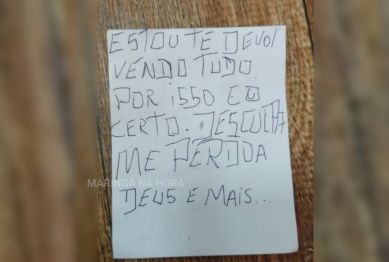 ESTOU TE DEVOL
VENDO TUDO.
POR ISSO E O
CERTO. DESCULPA
ME PERDOA
MARINGÁ NA HORA
DEUS E MAIS...